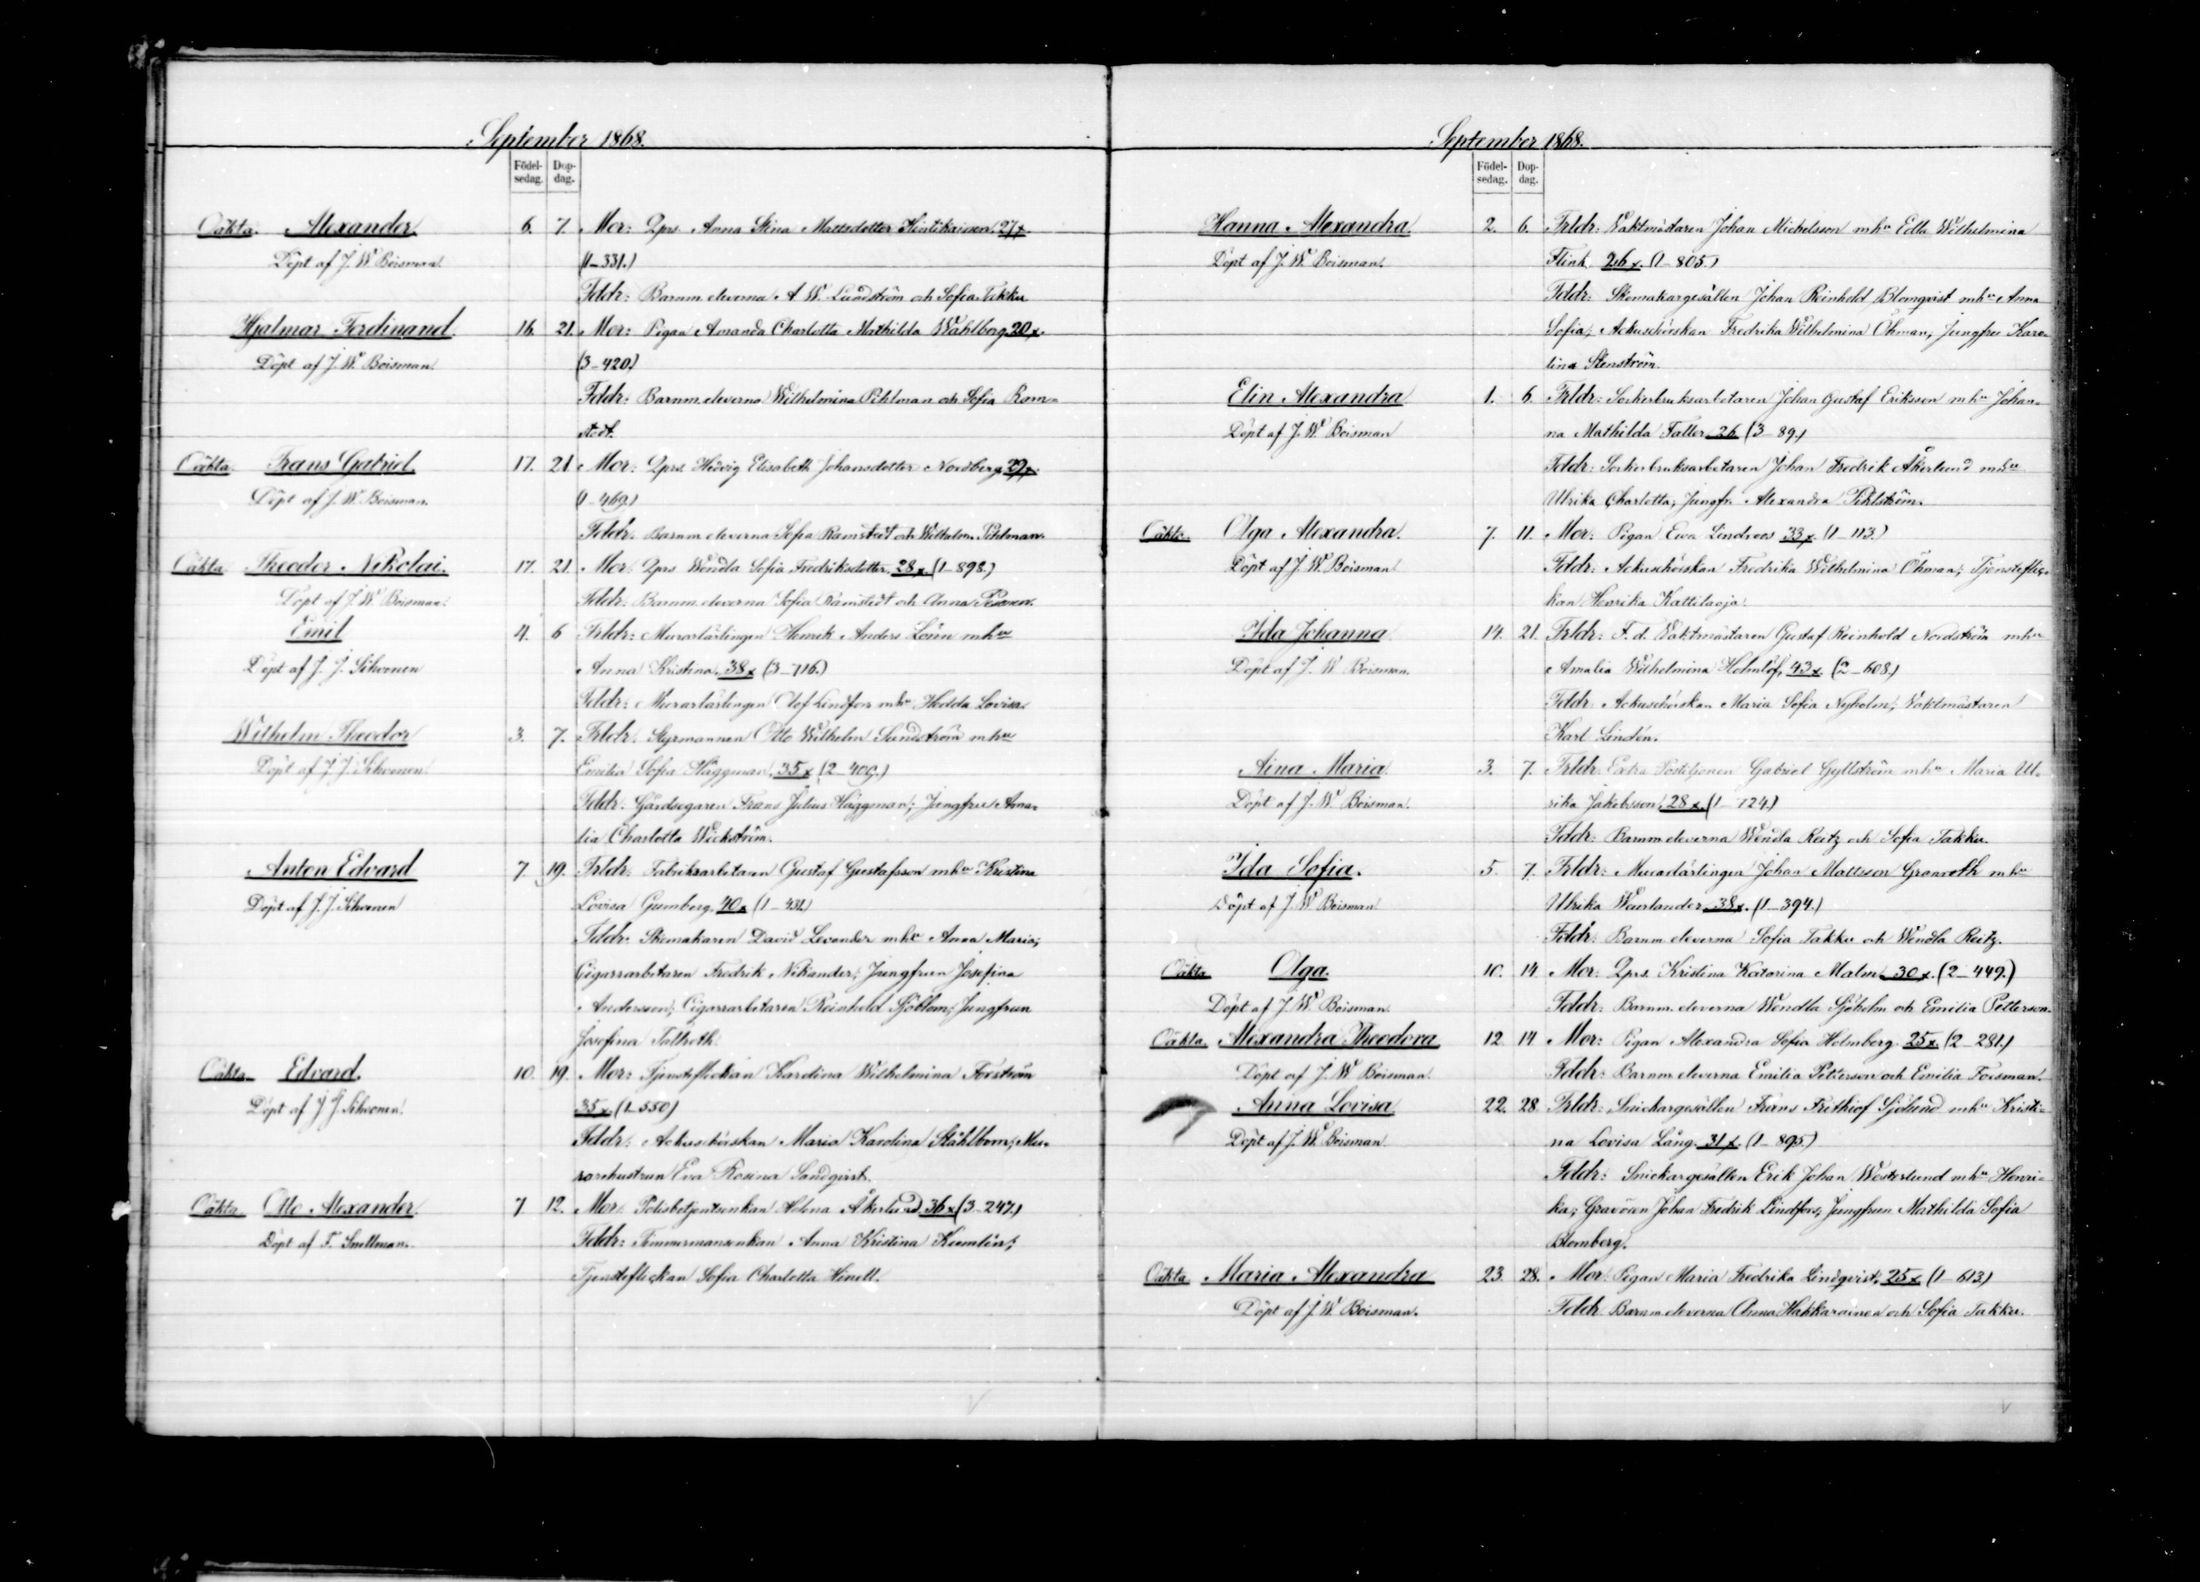 September 1868.
Födel-
sedag.
Dop-
dag.
Oäkta. Alexander. 6. 7. Mor: Qprs. Anna Stina Mattsdotter Hintikainen. 27 x.
Döpt af J. W. Boisman. (1–331.)
Fddr: Barnm. eleverna A. W. Lundström och Sofia Takku
Hjalmar Ferdinand. 16. 21. Mor: Pigan Amanda Charlotta Mathilda Wahlberg. 20 x.
Döpt af J. W. Boisman. (3–420.)
Fddr: Barnm. eleverna Wilhelmina Pihlman och Sofia Ram-
stedt.
Oäkta Frans Gabriel. 17. 21. Mor: Qprs. Hedvig Elisabeth Johansdotter Nordberg. 29 x.
Döpt af J. W. Boisman. (1–469.)
Fddr: Barnm. eleverna Sofia Ramstedt och Wilhelm. Pihlman.
Oäkta Theodor Nikolai. 17. 21. Mor: Qprs Wendla Sofia Fredriksdotter. 28 x. (1–898.)
Döpt af J. W. Boisman. Fddr: Barnm. eleverna Sofia Ramstedt och Anna Pesonen.
Emil 4. 6 Frldr: Murarlärlingen Henrik Anders Lönn mhu
Döpt af J. J. Sihvonen Anna Kristina. 38 x (3–716.)
Fddr: Murarlärlingen Olof Lindfors mhu Hedda Lovisa.
Wilhelm Theodor 3. 7. Frldr: Styrmannen Otto Wilhelm Sundström mhu
Döpt af J. J. Sihvonen. Emilia Sofia Häggman. 35 x (2–409.)
Fddr: Gårdsegaren Frans Julius Häggman; Jungfru Ama-
lia Charlotta Wickström.
Anton Edvard 7. 19. Frldr: Fabriksarbetaren Gustaf Gustafsson mhu Kristina
Döpt af J. J. Sihvonen Lovisa Gumberg. 40 x (1–431.)
Fddr: Skomakaren David Levander mhu Anna Maria;
Cigarrarbetaren Fredrik Nikander; Jungfrun Josefina
Andersson; Cigarrarbetaren Reinhold Sjöblom; Jungfrun
Josefina Tallroth.
Oäkta Edvard. 10. 19. Mor: Tjensteflickan Karolina Wilhelmina Forström
Döpt af J. J. Sihvonen. 35 x. (1–550)
Fddr: Ackuschörskan Maria Karolina Ståhlbom; Mu-
rarehustrun Eva Rosina Sandqvist.
Oäkta Otto Alexander 7. 12. Mor: Polisbetjentsenkan Helena Åkerlund 36 x (3–247.)
Döpt af F. Snellman. Fddr: Timmermansenkan Anna Kristina Kumlin;
Tjensteflickan Sofia Charlotta Hinell.
September 1868.
Födel-
sedag.
Dop-
dag.
Hanna Alexandra 2. 6. Frldr: Vaktmästaren Johan Michelsson mhu Edla Wilhelmina
Döpt af J. W. Boisman. Flink 26 x. (1–805.)
Fddr: Skomakargesällen Johan Reinhold Blomqvist mhu Anna
Sofia; Ackuschörskan Fredrika Wilhelmina Öhman; Jungfru Karo-
lina Stenström.
Elin Alexandra 1. 6. Frldr: Sockerbruksarbetaren Johan Gustaf Eriksson mhu Johan-
Döpt af J. W. Boisman na Mathilda Faller. 26 (3–89.)
Fddr: Sockerbruksarbetaren Johan Fredrik Åkerlund mhu
Ulrika Charlotta; Jungfr. Alexandra Pihlström.
Oäkta. Olga Alexandra. 7. 11. Mor: Pigan Ewa Lindroos 33 x. (1–113.)
Döpt af J. W. Boisman Fddr: Ackuschörskan Fredrika Wilhelmina Öhman; Tjensteflic-
kan Henrika Kattilaoja.
Ida Johanna 14. 21. Frldr: F. d. Vaktmästaren Gustaf Reinhold Nordström mhu
Döpt af J. W. Boisman. Amalia Wilhelmina Holmlöf. 43 x. (2–608.)
Fddr: Ackuschörskan Maria Sofia Nyholm; Vaktmästaren
Karl Lindén.
Aina Maria 3. 7. Frldr: Extra Postiljonen Gabriel Gyllström mhu Maria Ul-
Döpt af J. W. Boisman. rika Jakobsson. 28 x. (1–124.)
Fddr: Barnm. eleverna Wendla Reitz och Sofia Takku.
Ida Sofia. 5. 7. Frldr: Murarlärlingen Johan Mattsson Granroth mhu
Döpt af J. W. Boisman Ulrika Waurlander. 38 x. (1–394.)
Fddr: Barnm. eleverna Sofia Takku och Wendla Reitz.
Oäkta Olga. 10. 14. Mor: Qprs. Kristina Katarina Malm. 30 x. (2–449.)
Döpt af J. W. Boisman. Fddr: Barnm. eleverna Wendla Sjöholm och Emilia Petterson.
Oäkta. Alexandra Theodora 12 14 Mor: Pigan Alexandra Sofia Holmberg. 25 x. (2–281.)
Döpt af J. W. Boisman. Fddr: Barnm. eleverna Emilia Petterson och Emilia Foisman.
Anna Lovisa 22. 28. Frldr: Snickargesällen Frans Frithiof Sjölund mhu Kristi-
Döpt af J. W. Boisman. na Lovisa Lång. 31 x. (1–895.)
Fddr: Snickargesällen Erik Johan Westerlund mhu Henri-
ka; Gravören Johan Fredrik Lindfors; Jungfrun Mathilda Sofia
Blomberg.
Oäkta Maria Alexandra 23. 28. Mor: Pigan Maria Fredrika Lindqvist. 25 x. (1–613.)
Döpt af J. W. Boisman. Fddr: Barnm. eleverna Anna Hakkarainen och Sofia Takku.